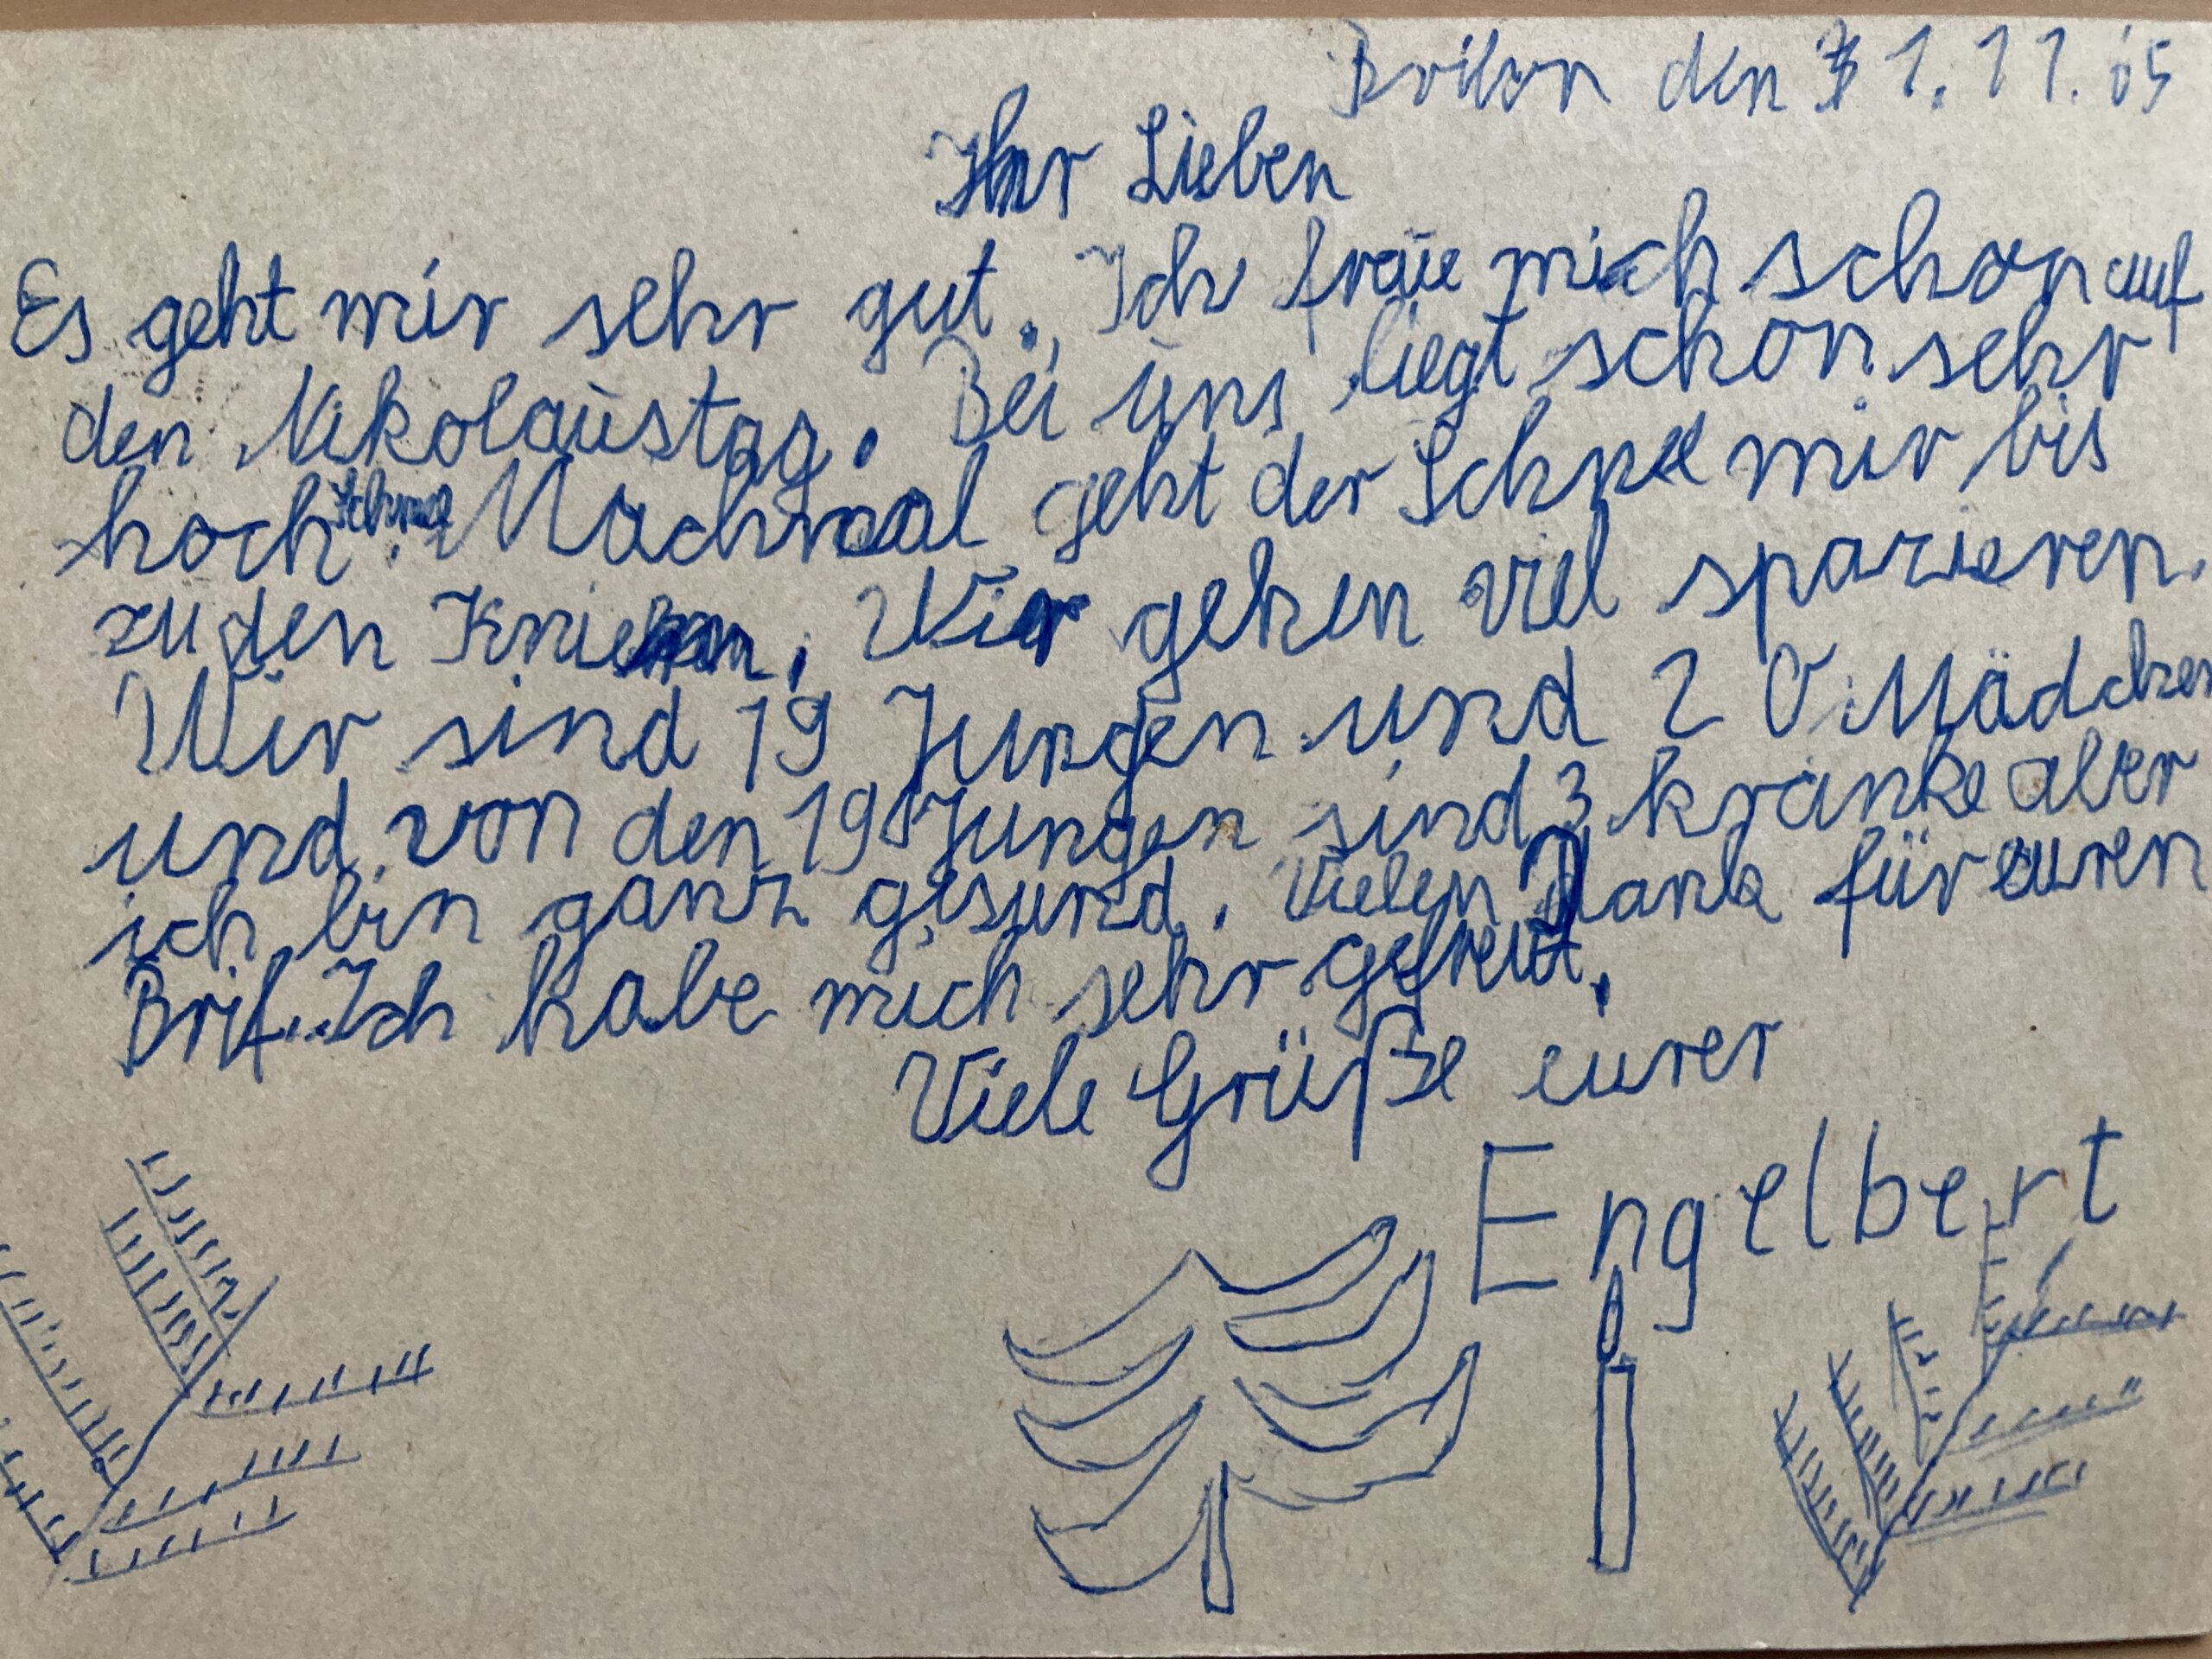 Brilon den 1.11.65
Ihr Lieben
Es geht mir sehr gut. Ich fraue mich schon auf
den Nikolaustag. Bei uns liegt schon sehr
hoch Schne. Machmal geht der Schnee mir bis
zu den Knien. Wir gehen viel spazieren.
Wir sind 19 Jungen und 20 Mädchen
und von den 19 Jungen sind 3 kranke aber
ich bin ganz gesund. Vielen Dank für euren
Brif. Ich habe mich sehr gefreut.
Viele Grüße eurer
Engelbert